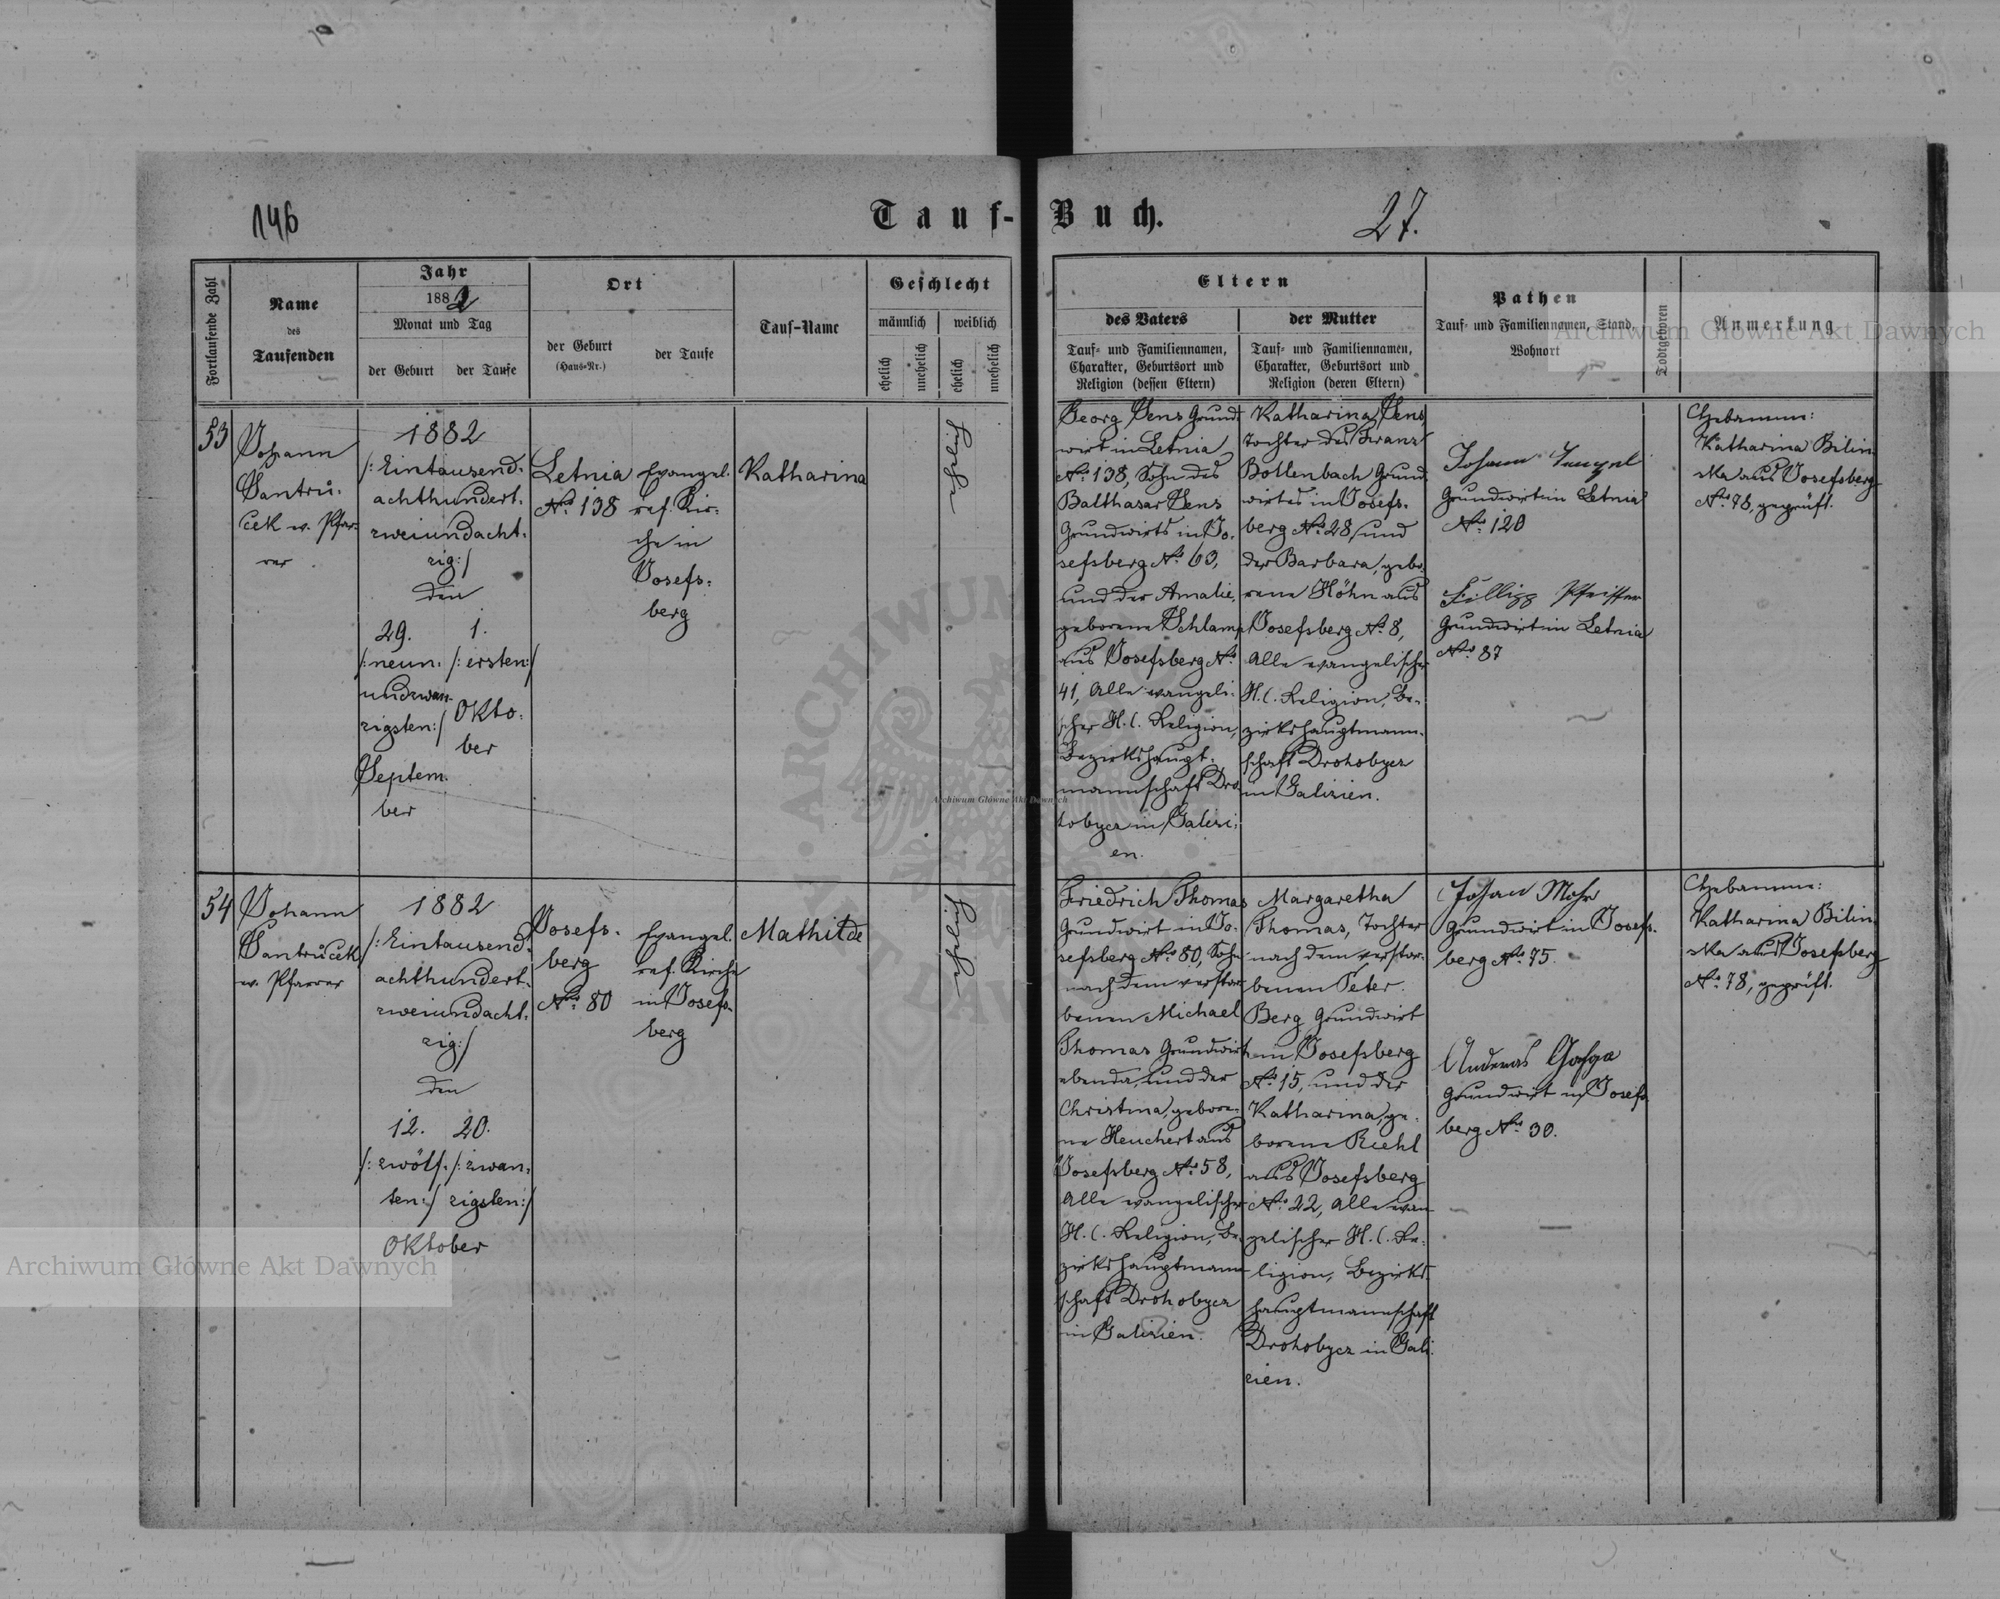 146
Tauf-
Buch.
27.
Fortlaufende Zahl
Name
des
Taufenden
Jahr
1882
Monat und Tag
der Geburt
der Taufe
Ort
der Geburt
(Haus-Nr.)
der Taufe
Tauf-Name
Geschlecht
männlich
weiblich
ehelich
unehelich
ehelich
unehelich
Eltern
des Vaters
Tauf- und Familiennamen,
Charakter, Geburtsort und
Religion (dessen Eltern)
der Mutter
Tauf- und Familiennamen,
Charakter, Geburtsort und
Religion (deren Eltern)
Pathen
Tauf- und Familiennamen, Stand,
Wohnort
Todtgeboren
Anmerkung
53
Johann
Šantrů-
ček ev. Pfar-
rer
1882
/: Eintausend-
achthundert-
zweiundacht-
zig:/
den
29.
/: neun-
undzwan-
zigsten:/
Septem-
ber
1.
/: ersten:/
Okto-
ber
Letnia
No 138
Evangel.
ref. Kir-
che in
Josefs-
berg
Katharina
Georg Jens Grund-
wirt in Letnia
No 138, Sohn des
Balthasar Jens
Grundwirts in Jo-
sefsberg No 63,
und der Amalie,
geborene Schlamp
aus Josefsberg No
41, Alle evangeli-
scher H.C. Religion,
Bezirkshaupt-
mannschaft Dro-
hobycz in Galizi-
en.
Katharina Jens,
Tochter des Franz
Bollenbach Grund-
wirtes in Josefs-
berg No 28, und
der Barbara, gebo-
rene Höhn aus
Josefsberg No 8,
Alle evangelischer
H.C. Religion, Be-
zirkshauptmann-
schaft Drohobycz
in Galizien.
Johann
Grundwirt in Letnia
No 120
Fillipp Pfeiffer
Grundwirt in Letnia
No 87
Hebamme:
Katharina Bilin-
ska aus Josefsberg
No 78, geprüft.
54
Johann
Šantrůček
ev. Pfarrer
1882
/: Eintausend-
achthundert-
zweiundacht-
zig:/
den
12.
/: zwölf-
ten:/
20.
/: zwan-
zigsten:/
Oktober
Josefs-
berg
No 80
Evangel.
ref. Kirche
in Josefs-
berg
Mathilde
Friedrich Thomas
Grundwirt in Jo-
sefsberg No 80, Sohn
nach dem verstor-
benen Michael
Thomas Grundwirt
ebenda, und der
Christina, gebore-
ne Heuchert aus
Josefsberg No 58,
Alle evangelischer
H.C. Religion, Be-
zirkshauptmann-
schaft Drohobycz
in Galizien.
Margaretha
Thomas, Tochter
nach dem verstor-
benen Peter
Berg Grundwirt
in Josefsberg
No 15, und der
Katharina, ge-
borene Riehl
aus Josefsberg
No 22, Alle evan-
gelischer H.C. Re-
ligion, Bezirks-
hauptmannschaft
Drohobycz in Gali-
zien.
Johan Mohr
Grundwirt in Josefs-
berg No 75.
Andreas
Grundwirt in Josefs-
berg No 30.
Hebamme:
Katharina Bilin-
ska aus Josefsberg
No 78, geprüft.
Archiwum Główne Akt Dawnych
Archiwum Główne Akt Dawnych
Archiwum Główne Akt Dawnych